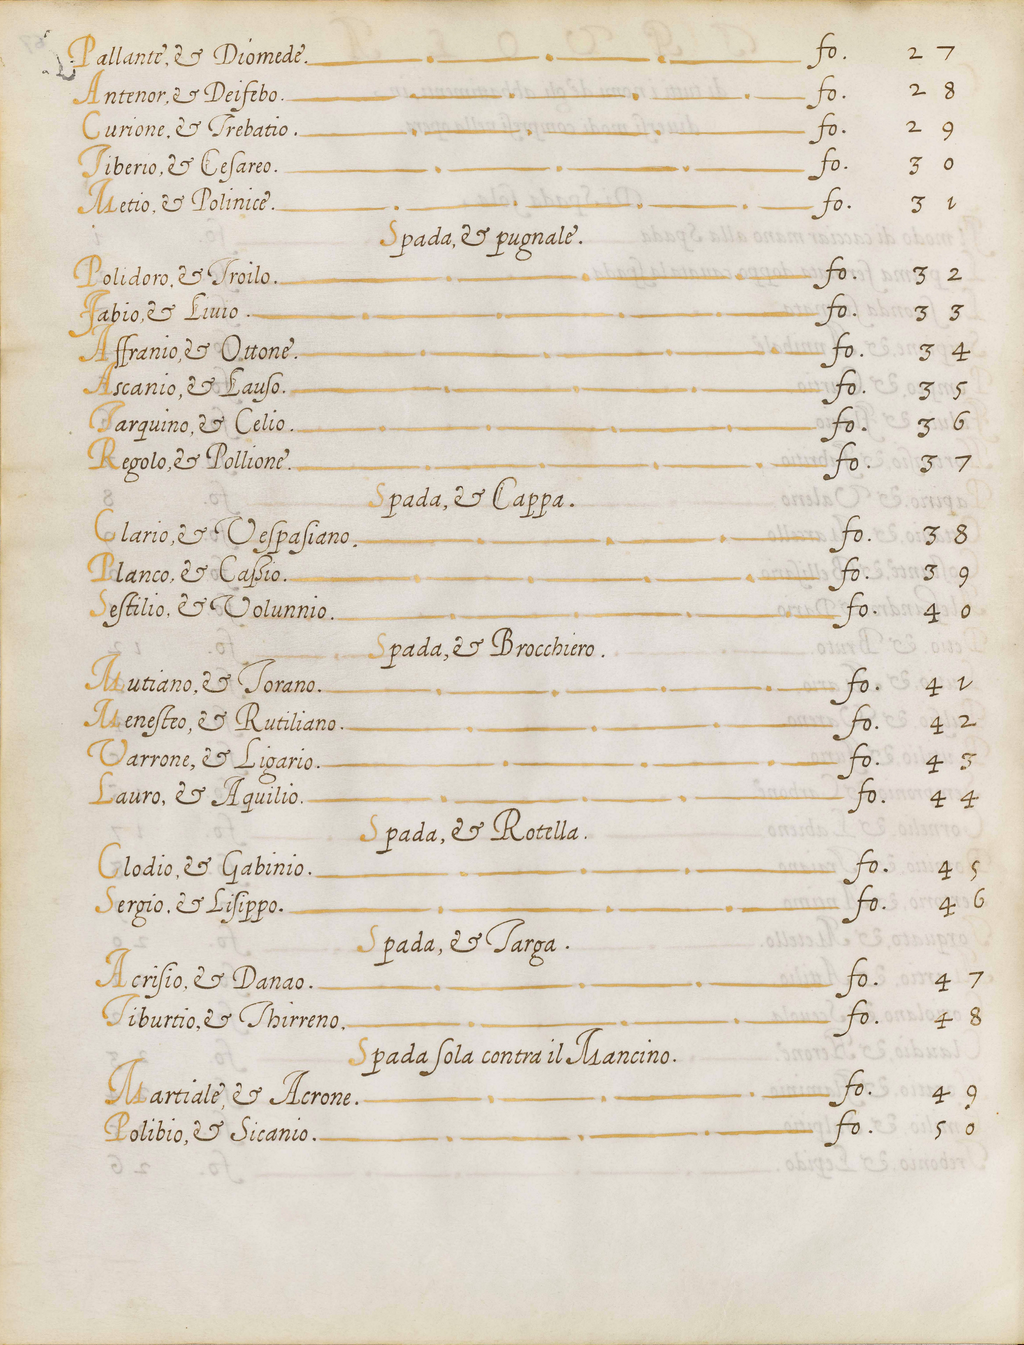 Pallante, & Diomede. fo. 27
Antenor, & Deifebo. fo. 28
Curione, & Trebatio. fo. 29
Tiberio, & Cesareo. fo. 30
Metio, & Polinice. fo. 31
Spada, & pugnale.
Polidoro, & Troilo. fo. 32
Fabio, & Liuio. fo. 33
Affranio, & Ottone. fo. 34
Ascanio, & Lauso. fo. 35
Tarquino, & Celio. fo. 36
Regolo, & Pollione. fo. 37
Spada, & Cappa.
Clario, & Vespasiano. fo. 38
Planco, & Cassio. fo. 39
Sestilio, & Volunnio. fo. 40
Spada, & Brocchiero.
Mutiano, & Torano. fo. 41
Menesteo, & Rutiliano. fo. 42
Varrone, & Ligario. fo. 43
Lauro, & Aquilio. fo. 44
Spada, & Rotella.
Clodio, & Gabinio. fo. 45
Sergio, & Lisippo. fo. 46
Spada, & Targa.
Acrisio, & Danao. fo. 47
Tiburtio, & Thirreno. fo. 48
Spada sola contra il Mancino.
Martiale, & Acrone. fo. 49
Polibio, & Sicanio. fo. 50